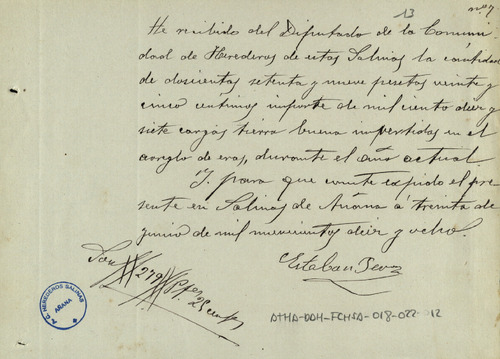 13
nº 7
He recibido del Diputado de la Comuni
dad de Herederos de estas Salinas la cantidad
de doscientas setenta y nueve pesetas veinte y
cinco centimos importe de mil ciento diez y
siete cargas tierra buena impertidas en el
arreglo de eras, durante el año actual.
Y para que conste expido el pre
sente en Salinas de Añana á treinta de
junio de mil novecientos diez y ocho.
Esteban
Son 279 Ptas 25 cents
A.C. HEREDEROS SALINAS
AÑANA
ATHA-DAH-FCHSA-018-022-12